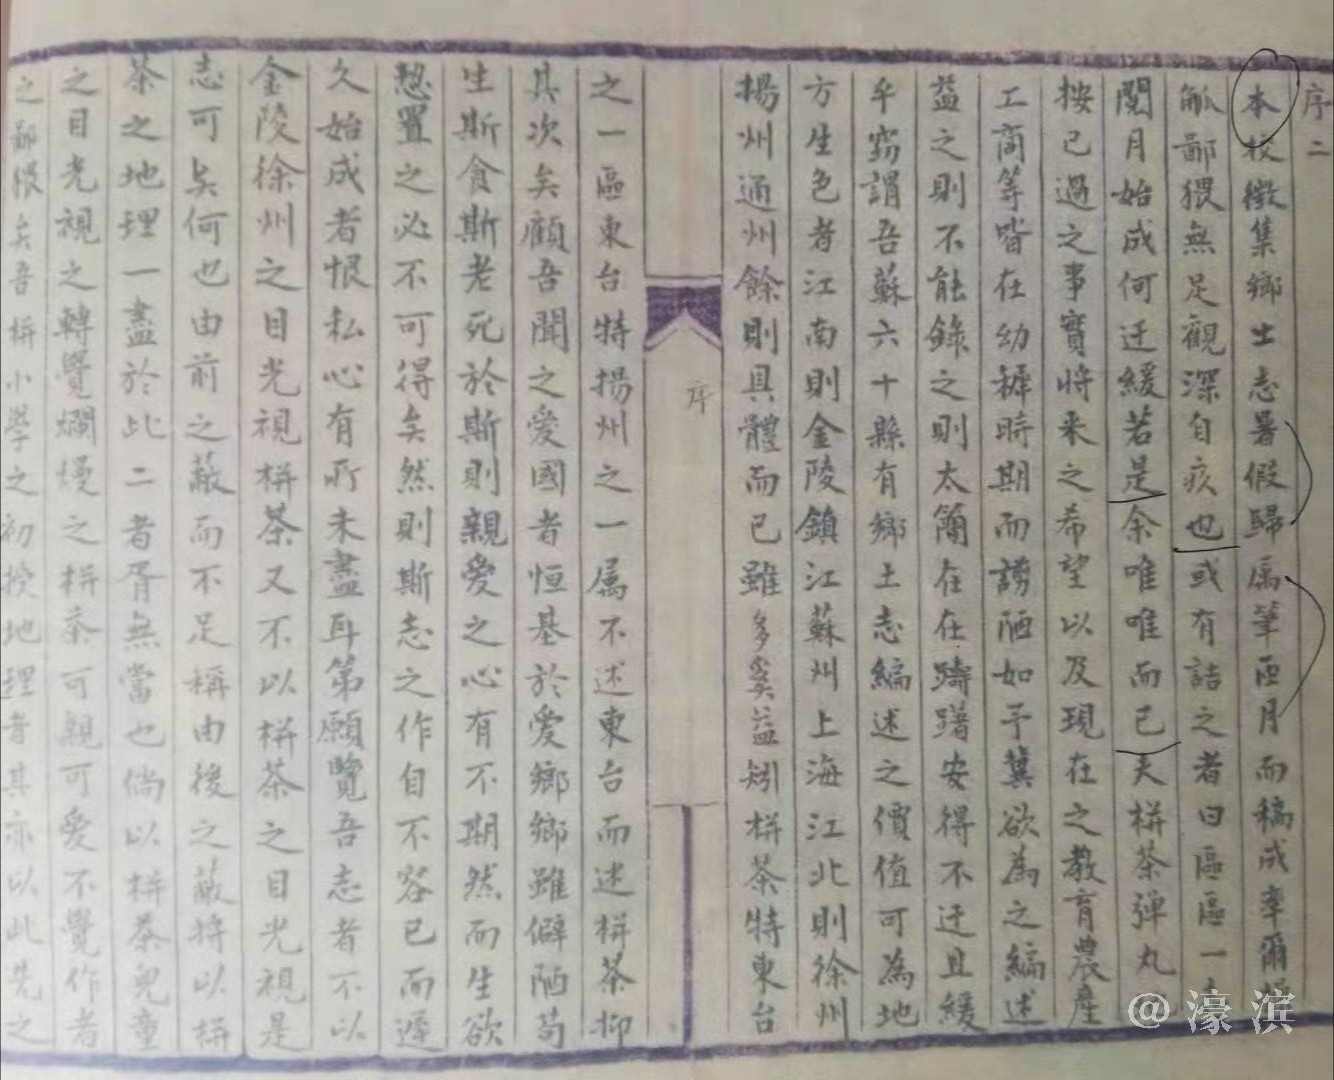 序二
本校徵集鄉土志暑假歸属筆匝月而稿成率爾操
觚鄙猥無足觀深自疚也或有詰之者曰區區一
閱月始成何迂緩若是余唯唯而已夫栟茶彈丸
按已過之事實將来之希望以及現在之教育農產
工商等皆在幼穉時期而謭陋如予冀欲為之編述
益之則不能錄之則太簡在在躊躇安得不迂且緩
乎竊謂吾蘇六十縣有鄉土志編述之價值可為地
方生色者江南則金陵鎮江蘇州上海江北則徐州
揚州通州餘則具體而已雖多奚益矧栟茶特東台
序
之一區東台特揚州之一属不述東台而述栟茶抑
其次矣顧吾聞之愛國者恒基於愛鄉鄉雖僻陋苟
生斯食斯老死於斯則親愛之心有不期然而生欲
恝置之必不可得矣然則斯志之作自不容已而遲
久始成者恨私心有所未盡耳第願覽吾志者不以
金陵徐州之目光視栟茶又不以栟茶之目光視是
志可矣何也由前之蔽而不足稱由後之蔽將以栟
茶之地理一盡於此二者胥無當也倘以栟茶兒童
之目光視之轉覺爛熳之栟茶可親可愛不覺作者
之鄙猥矣吾栟小學之初授地理者其亦以此先之
@濠滨